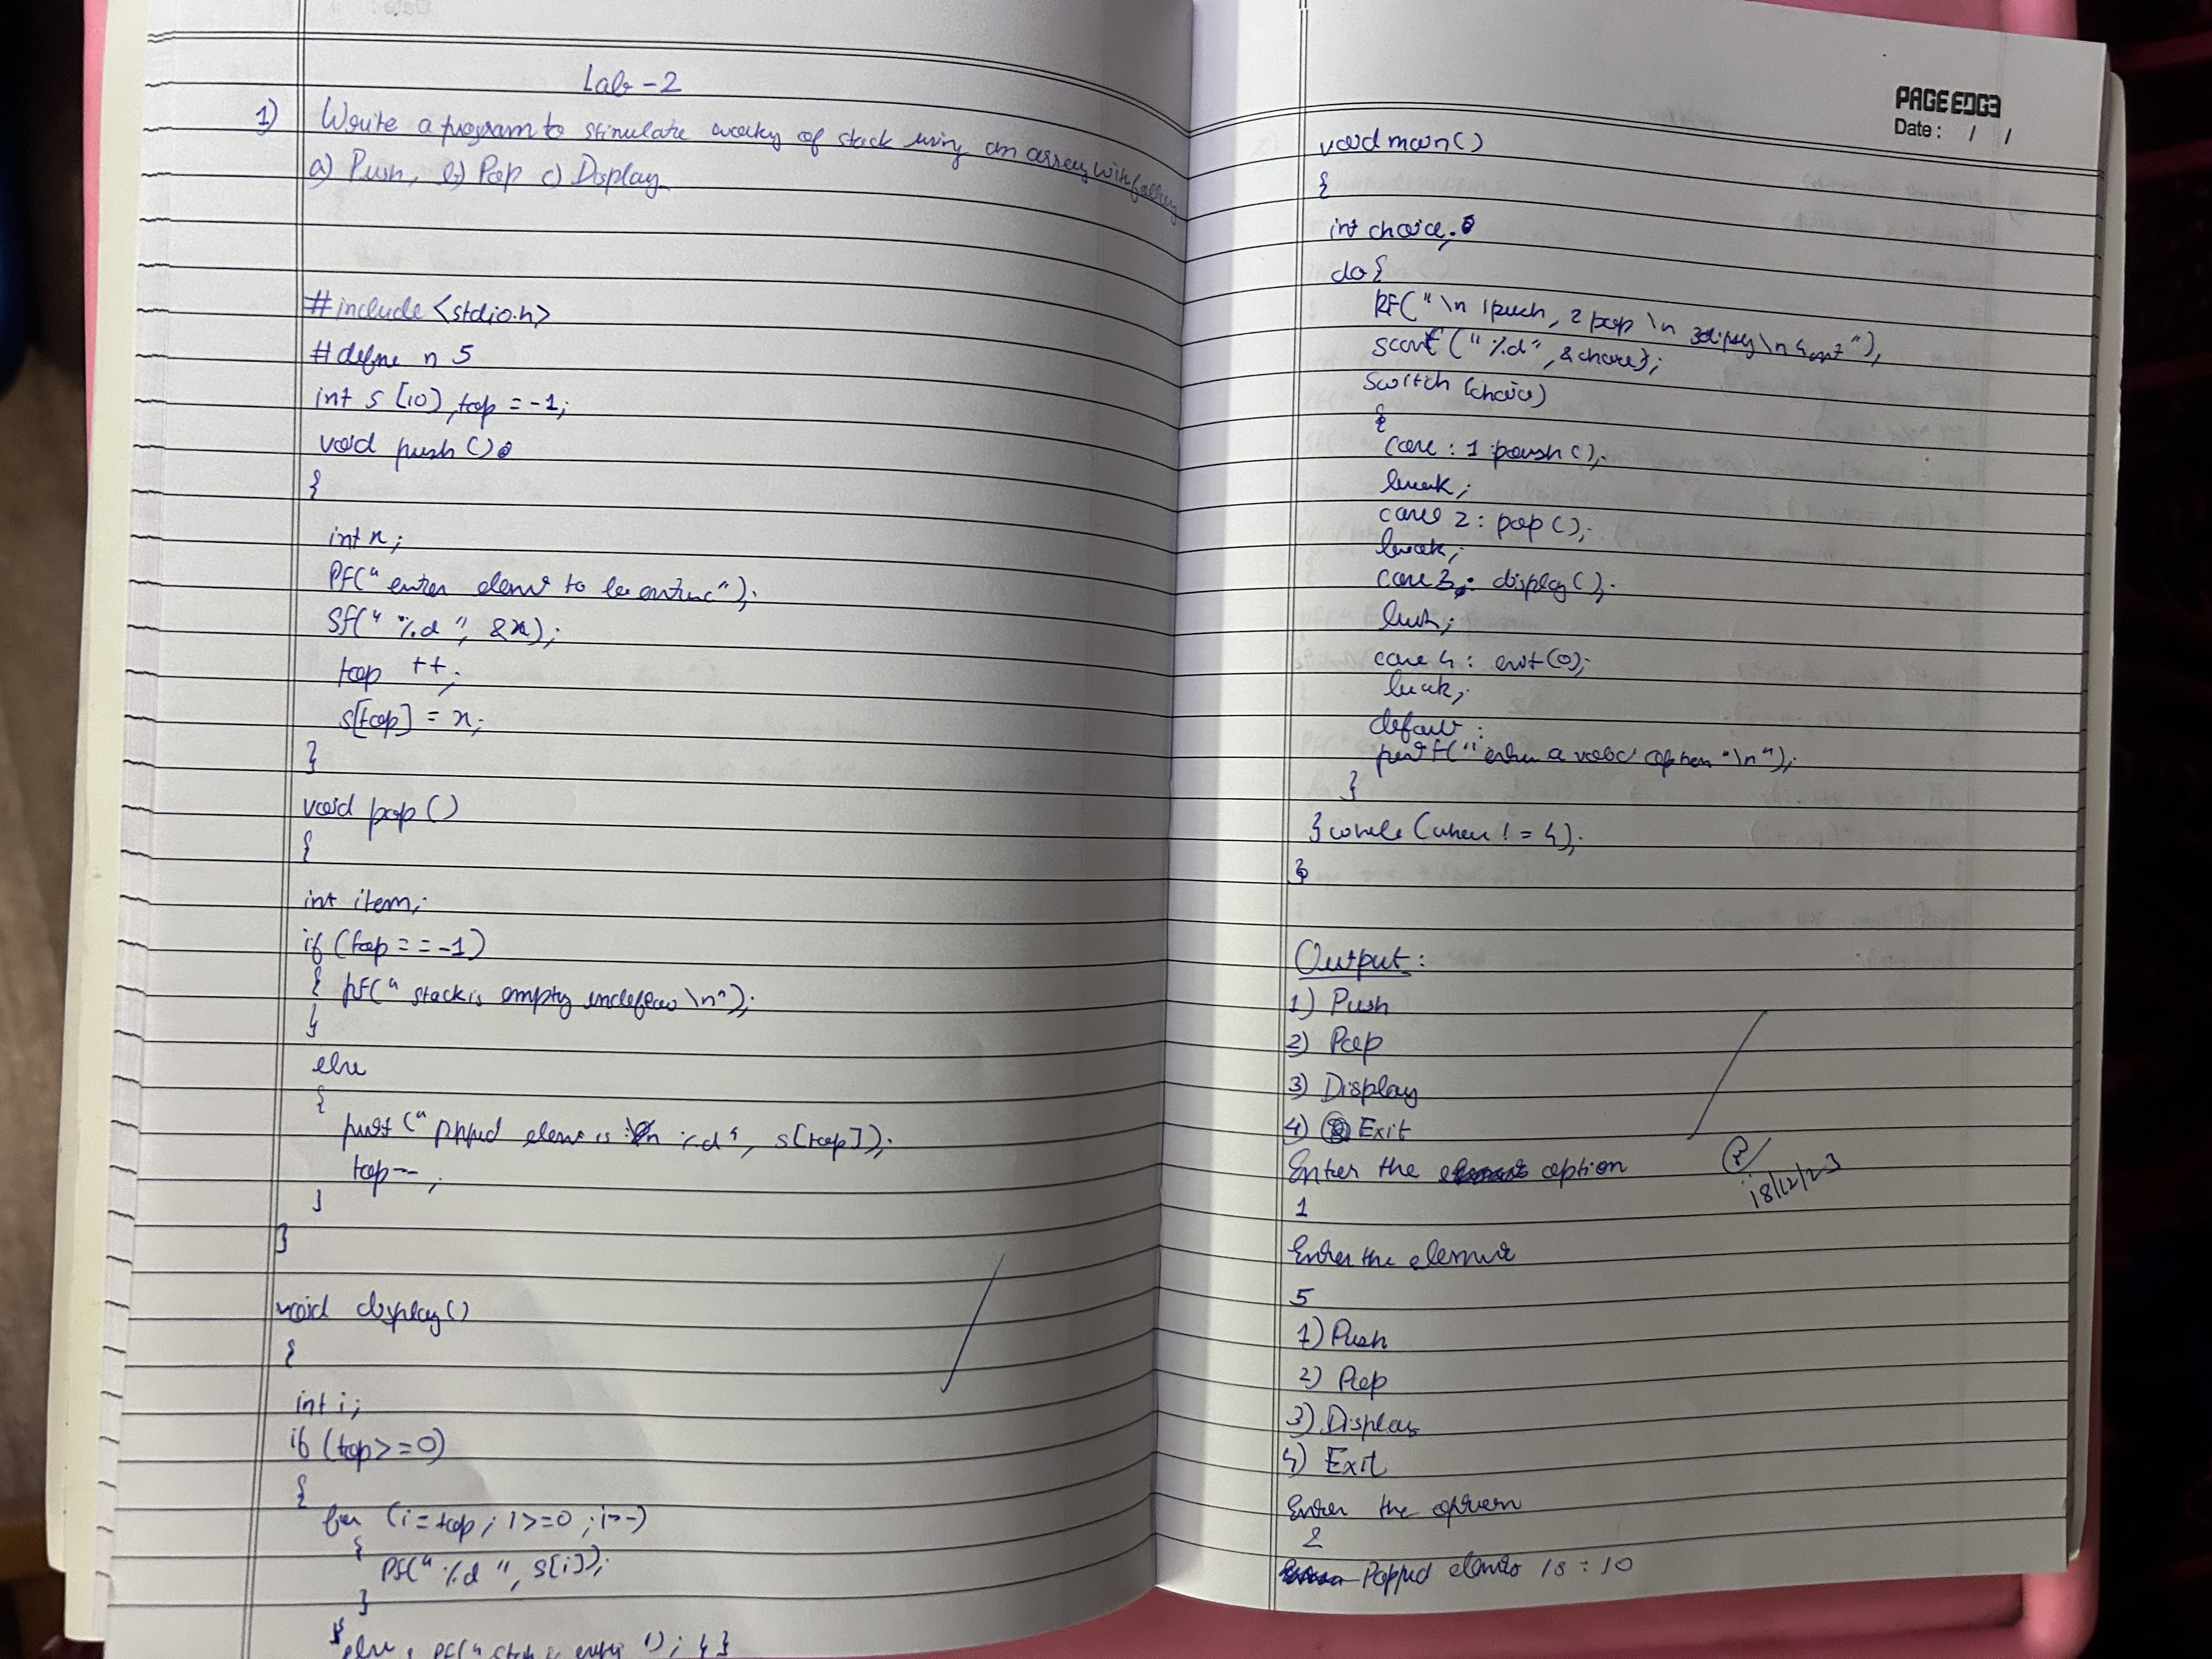 Lab - 2
1) Write a program to stimulate working of stack using an array with
a) Push, b) Pop c) Display.
#include <stdio.h>
#define n 5
int s[10], top = -1;
void push()
{
int x;
PF("enter element to be
SF("%d", &x);
top ++;
s[top] = x;
}
void pop()
{
int item;
if (top == -1)
{ PF("stack is empty underflow \n");
}
else
{
printf("popped element is : %d", s[top]);
top--;
}
}
void display()
{
int i;
if (top >= 0)
{
for (i = top; i >= 0; i--)
{
PF("%d", s[i]);
}
} else { PF("stack is empty"); } }
PAGEEDGE
Date : / /
void main()
{
int choice;
do {
PF("\n 1 push, 2 pop \n 3 display \n 4 exit");
scanf("%d", &choice);
switch (choice)
{
case : 1 push();
break;
case 2 : pop();
break;
case 3 : display();
break;
case 4 : exit(0);
break;
default :
printf("enter a valid option "\n");
}
} while (choice != 4);
}
Output :
1) Push
2) Pop
3) Display
4) Exit
Enter the option
1
Enter the element
5
1) Push
2) Pop
3) Display
4) Exit
Enter the option
2
Popped element is : 10
18/12/23